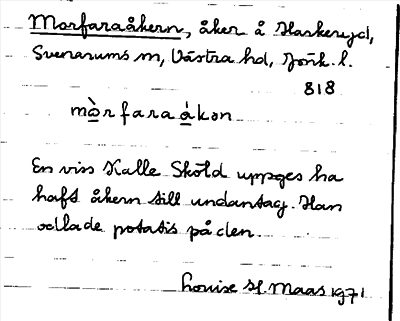 Morfaraåkern, åker å Haskeryd,
Svenarums sn, Västra hd, Jönk. l.
818
mòrfaraákən
En viss Kalle Sköld uppges ha
haft åkern till undantag. Han
odlade potatis på den.
Louise H. Maas 1971